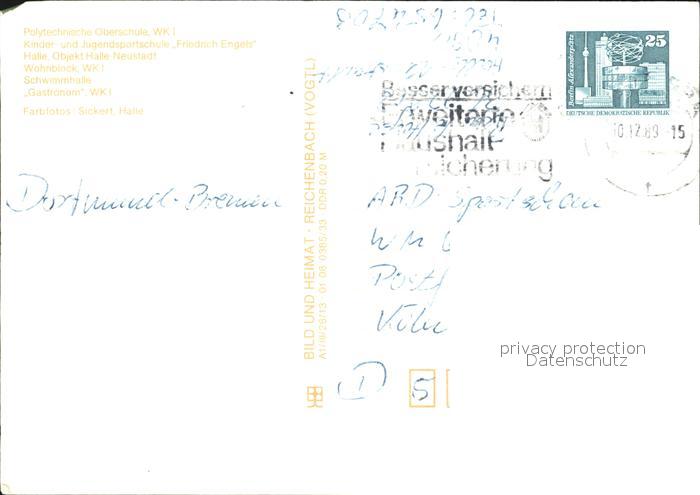 Polytechnische Oberschule, WK I
Kinder- und Jugendsportschule „Friedrich Engels"
Halle, Objekt Halle Neustadt
Wohnblock, WK I
Schwimmhalle
„Gastronom", WK I
Farbfotos: Sickert, Halle
Dortmund-Bremen
BILD UND HEIMAT · REICHENBACH (VOGTL)
A1/III/26/13 01 06 0365/33 DDR 0,20 M
Besser versichern
Erweiterte
Haushalt-
sicherung
Berlin-Alexanderplatz
25
DEUTSCHE DEMOKRATISCHE REPUBLIK
10.12.89-15
ARD Sportschau
WM
Postf
Köln
5
privacy protection
Datenschutz